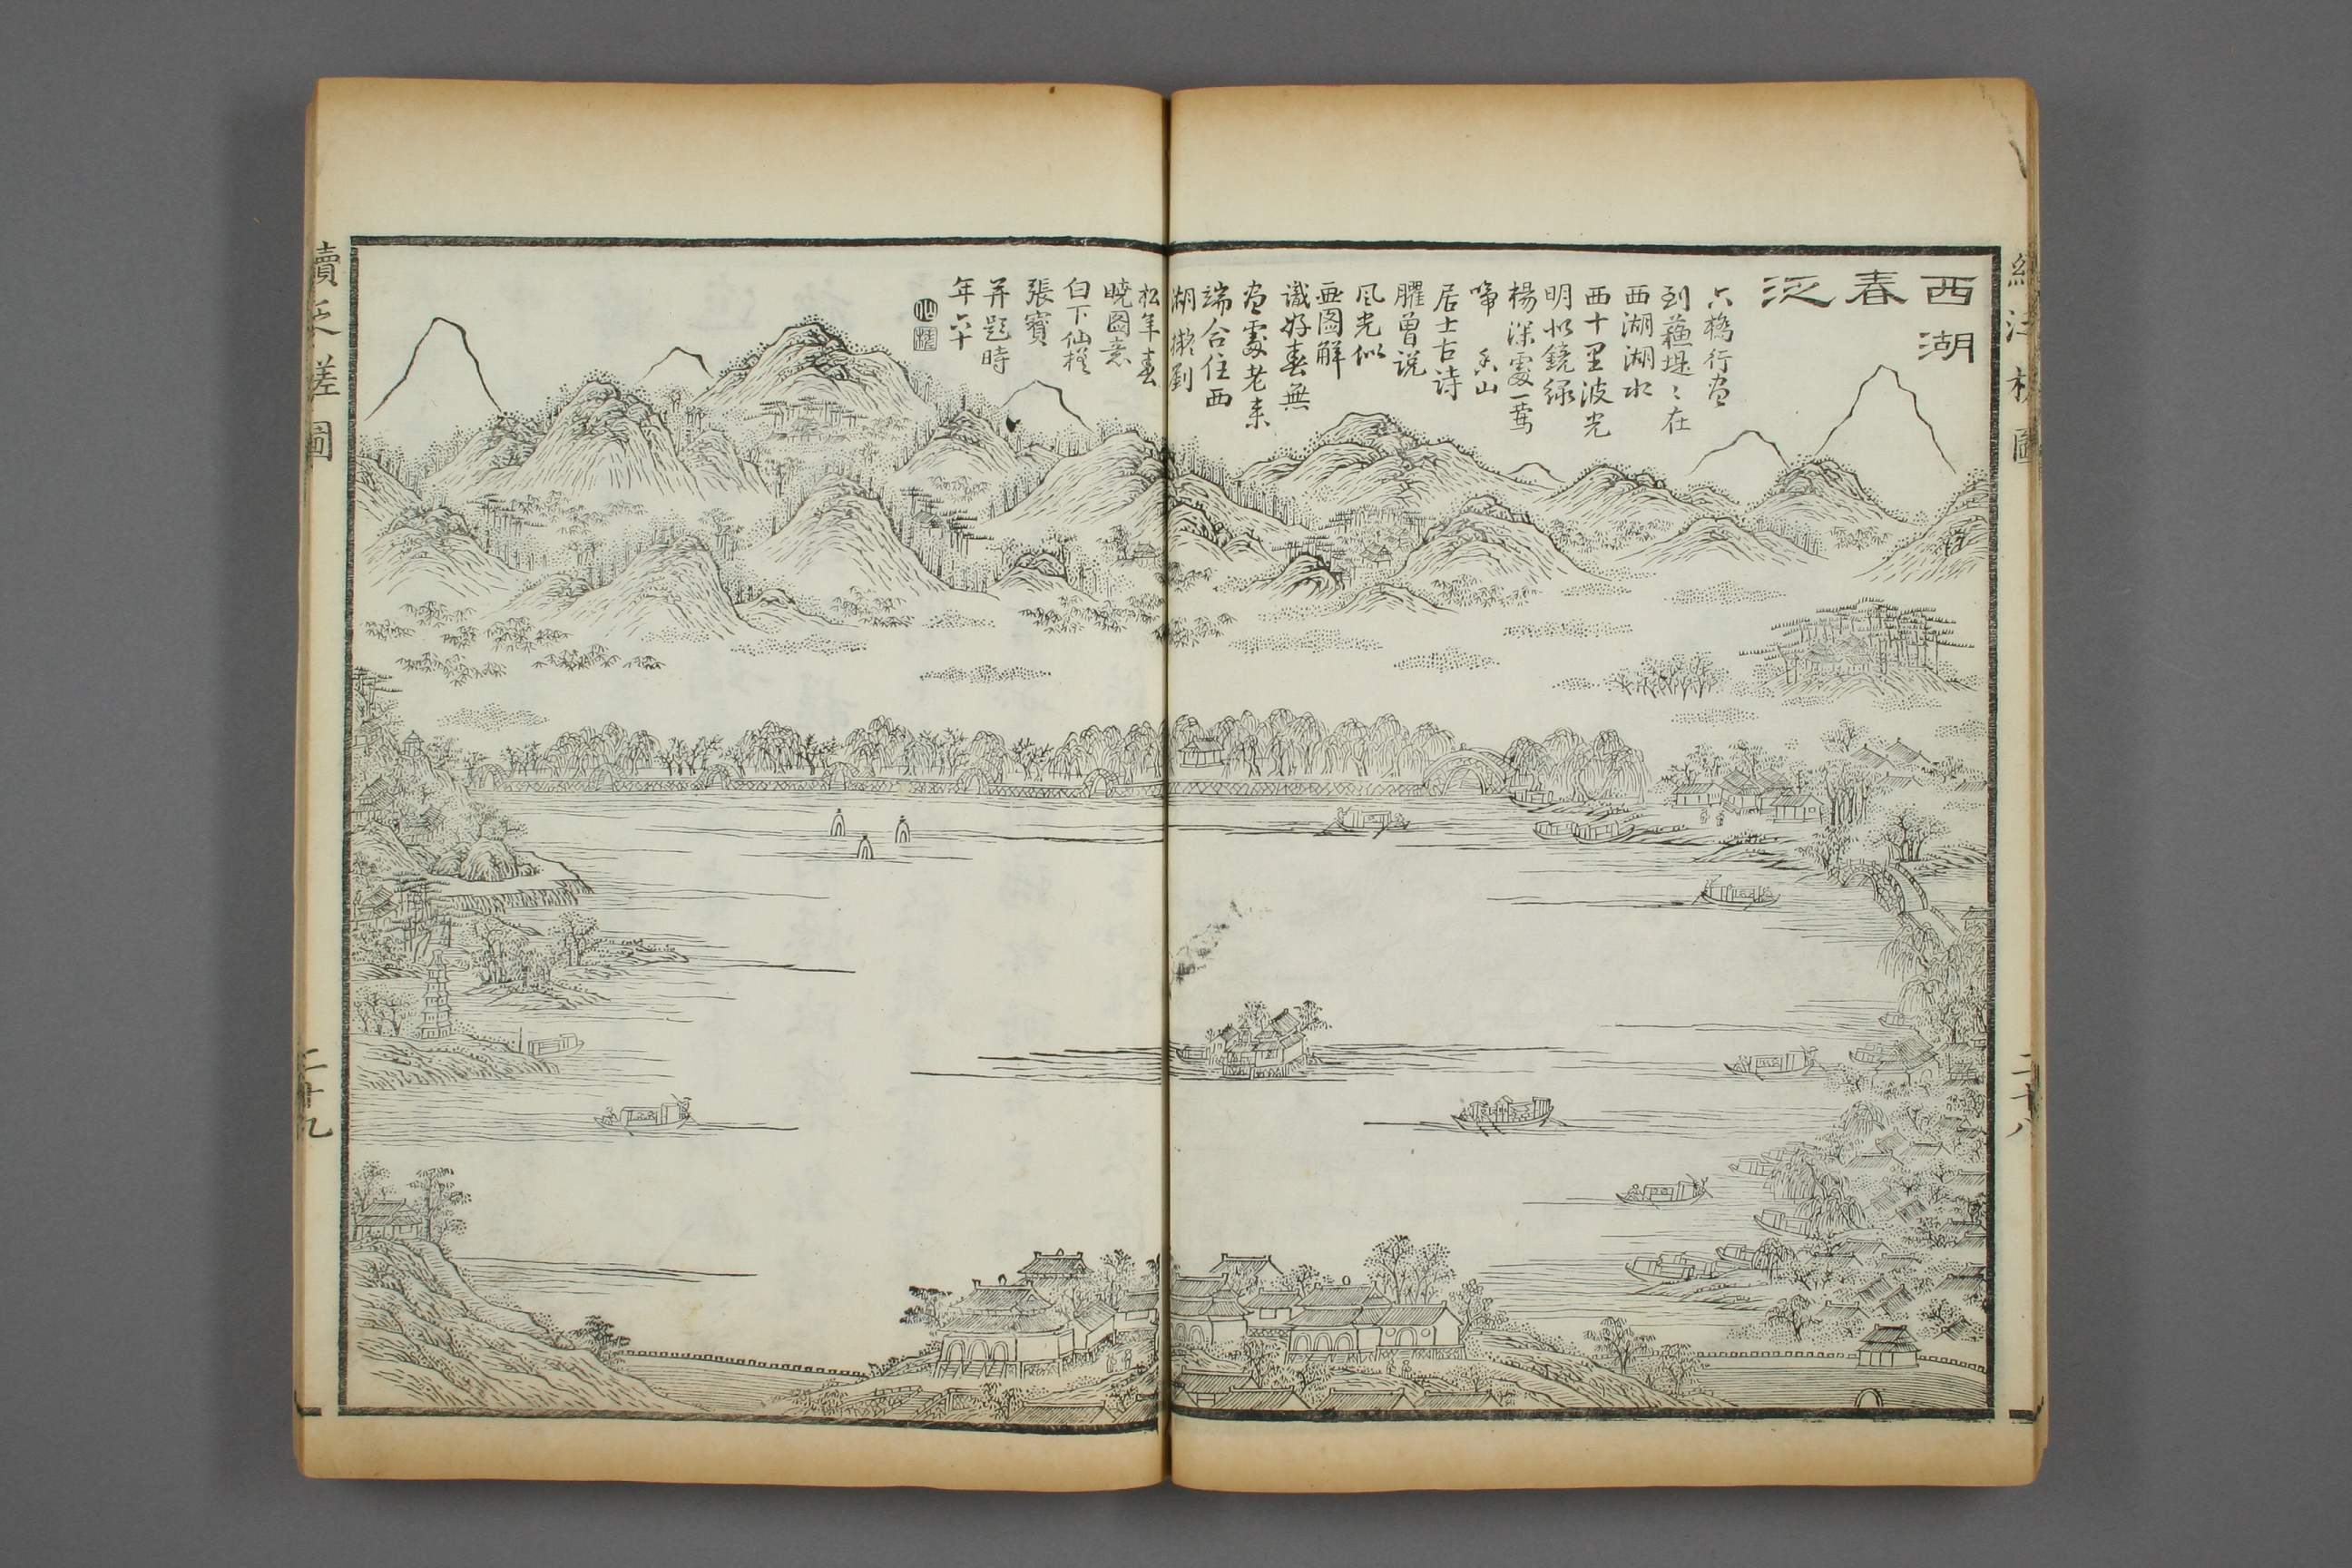 續泛槎圖
二十八
西湖
春
泛
六橋行盡
到蘓堤〻在
西湖湖水
西十里波光
明似鏡綠
楊深處一鶯
啼 香山
居士古詩
臞曾説
風光似
畫圖解
識好春無
盡處老来
端合住西
湖擬劉
松年春
曉圖意
白下仙槎
張寶
并題時
年六十
續泛槎圖
二十九